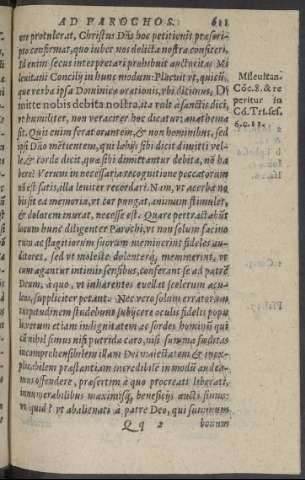 AD PAROCHOS. 611
ore protulerat, Christus Dñs hoc petitionis præscri-
pto confirmat, quo iubet nos delicta nostra confiteri.
Id enim secus interpretari prohibuit auctoritas Mi
leuitani Concilij in hunc modum: Placuit vt, quicũ-
que verba ipsa Dominicę orationis, vbi dicimus, Di
mitte nobis debita nostra, ita vult a sanctis dici,
vt humiliter, non veraciter hoc dicatur: anathema
sit. Quis enim ferat orantem, & non hominibus, sed
ipsi Dño mẽtientem, qui labijs sibi dicit dimitti vel-
le, & corde dicit, quæ sibi dimittantur debita, nõ ha
bere? Verum in necessaria recognitione peccatorum
nõ est satis, illa leuiter recordari. Nam, vt acerba no
bis sit ea memoria, vt cor pungat, animum stimulet,
& dolorem murat, necesse est. Quare pertractabũt
locum hunc diligenter Parochi, vt non solum facino
rum ac flagitiorum suorum meminerint fideles au-
ditores, sed vt molestè, dolenterq́; meminerint, vt
cum agantur intimis sensibus, conferant se ad patrẽ
Deum, à quo, vt inhærentes euellat scelerum acu-
leos, suppliciter petant. Nec vero solum erratorum
turpitudinem studebunt subijcere oculis fidelis popu
li, verum etiam indignitatem ac sordes hominũ qui
cũ nihil simus nisi putrida caro, nisi summa fœditas
incomprehensibilem illam Dei maiestatem & inex-
plicabilem præstantiam incredibile in modũ audea-
mus offendere, præsertim à quo procreati liberati,
innumerabilibus maximisq́; beneficijs aucti simus:
vt quid? vt abalienati à patre Deo, qui summum
Q q 2 bonum
Mileuitan.
Cõc. 8. & re
peritur in
Cõ. Tri. ses.
6. c. 11.